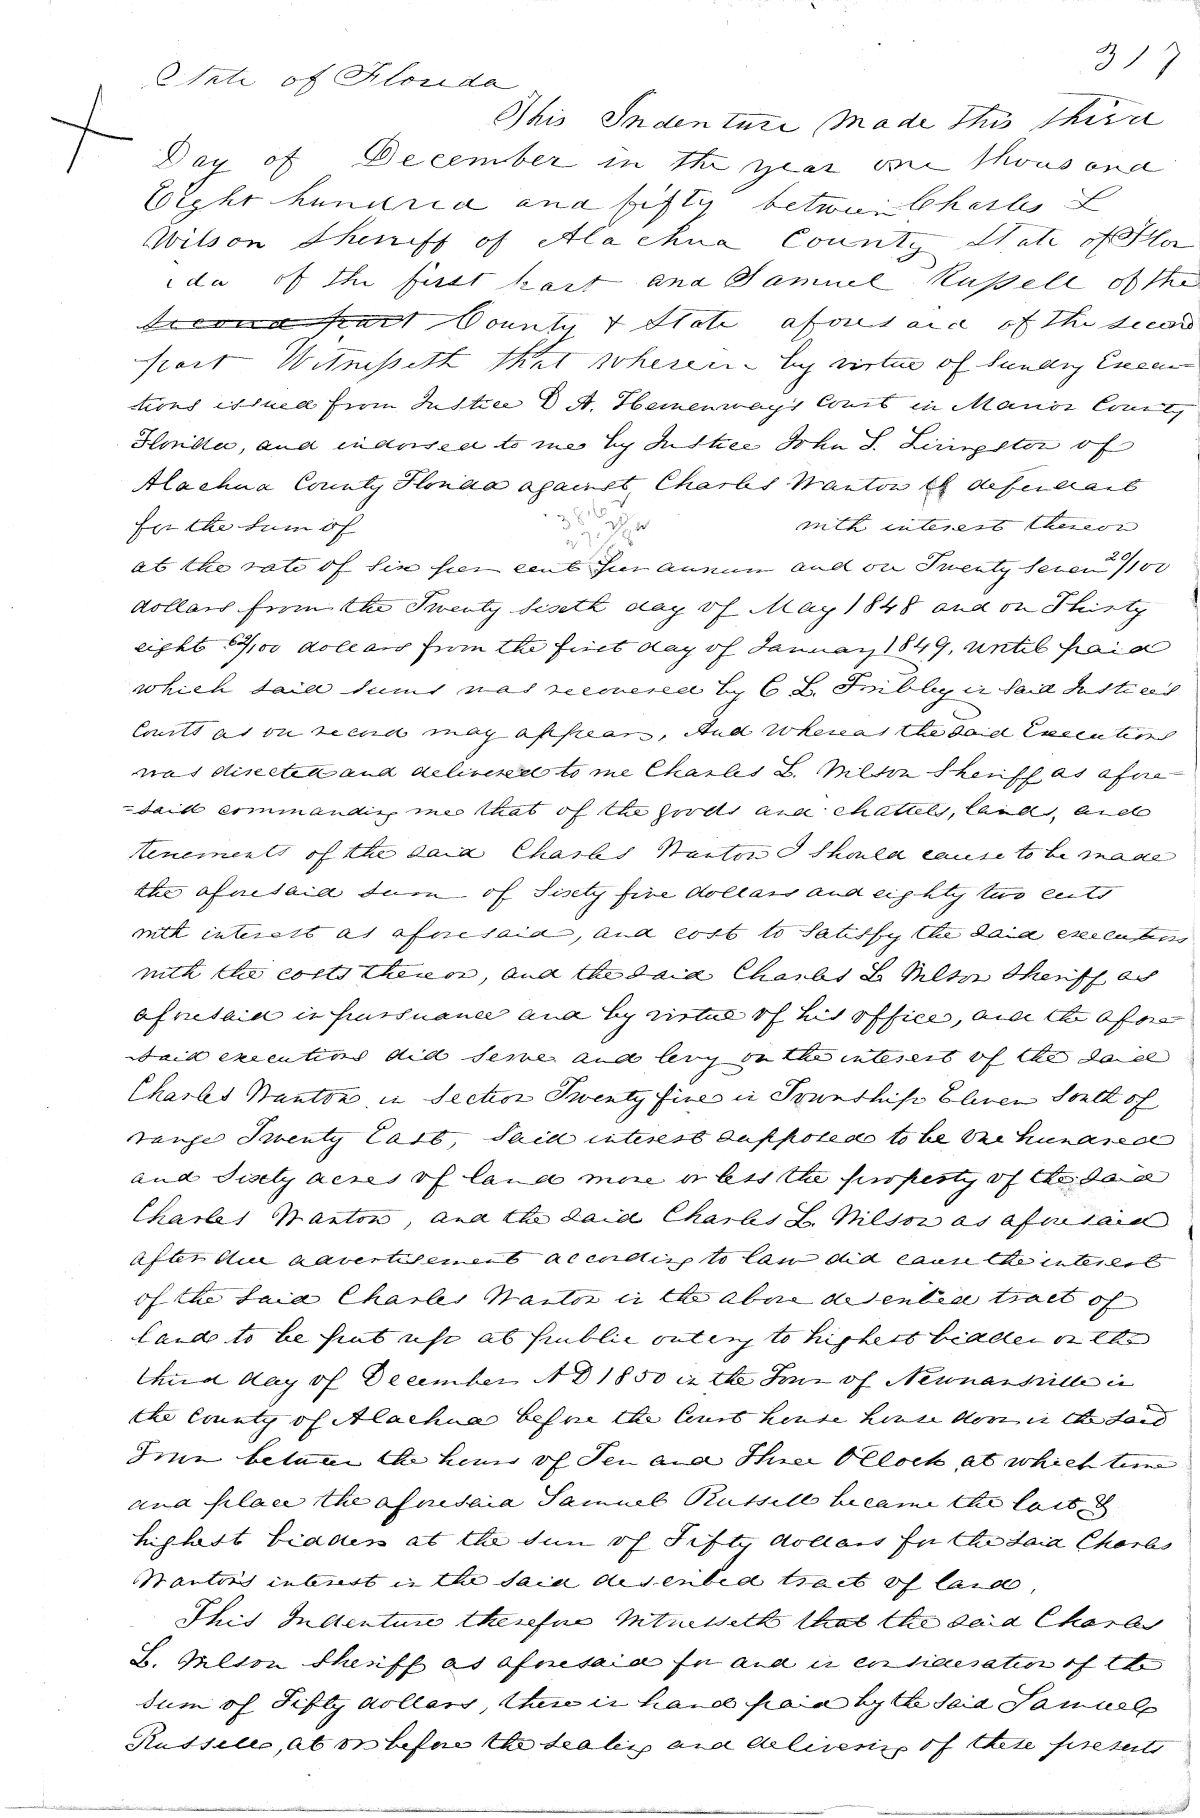 317
State of Florida
This Indenture made this third
Day of December in the year one thousand
Eight hundred and fifty between Charles L
Wilson Sherriff of Alachua County State of Flor
ida of the first part and Samuel Russell of the
second part County & State aforesaid of the second
part Witnesseth that wherein by virtue of Sundry Execu-
tions issued from Justice D A. Hemenway's Court in Marion County
Florida, and indorsed to me by Justice John S. Livingston of
Alachua County Florida against Charles Wanton defendant
for the sum of with interest thereon
at the rate of Six per cent per annum and on Twenty Seven 20/100
dollars from the Twenty Sixth day of May 1848 and on Thirty
eight 62/100 dollars from the first day of January 1849, until paid
which said sums was recovered by C L. Fribley in Said Justice's
Courts as on record may appear, And whereas the said Executions
was directed and delivered to me Charles L. Wilson Sheriff as afore-
=said commanding me that of the goods and chattels, lands, and
tenements of the said Charles Wanton I should cause to be made
the aforesaid sum of Sixty five dollars and eighty two cents
with interest as aforesaid, and cost to satisfy the said executions
with the costs thereon, and the said Charles L Wilson Sheriff as
aforesaid in pursuance and by virtue of his office, and the afore
said executions did serve and levy on the interest of the said
Charles Wanton in Section Twenty five in Township Eleven South of
range Twenty East, Said interest supposed to be One hundred
and Sixty acres of land more or less the property of the said
Charles Wanton, and the said Charles L. Wilson as aforesaid
after due advertisement according to law did cause the interest
of the said Charles Wanton in the above described tract of
land to be put up at public outcry to highest bidder on the
third day of December A D 1850 in the Town of Newnansville in
the County of Alachua before the Court house house door in the Said
Town between the hours of Ten and Three O'Clock at which time
and place the aforesaid Samuel Russell became the last &
highest bidder at the sum of Fifty dollars for the said Charles
Wanton's interest in the said described tract of land.
This Indenture therefore Witnesseth that the said Charles
L. Wilson Sheriff as aforesaid for and in consideration of the
Sum of Fifty dollars, there in hand paid by the said Samuel
Russell, at or before the sealing and delivering of these presents